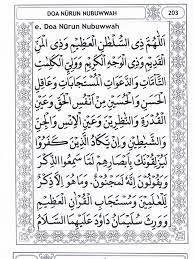 DOA NŪRUN NUBUWWAH
203
e. Doa Nūrun Nubuwwah
اَللّٰهُمَّ ذِى السُّلْطٰنِ الْعَظِيْمِ وَذِى الْمَنِّ
الْقَدِيْمِ وَذِى الْوَجْهِ الْكَرِيْمِ وَوَلِيِّ الْكَلِمٰتِ
التَّآمَّاتِ وَالدَّعَوَاتِ الْمُسْتَجَابَاتِ وَعَاقِلِ
الْحَسَنِ وَالْحُسَيْنِ مِنْ اَنْفُسِ الْحَقِّ عَيْنِ
الْقُدْرَةِ وَالنَّاظِرِيْنَ وَعَيْنِ الْاِنْسِ وَالْجِنِّ
وَالشَّيٰطِيْنِ وَاِنْ يَكَادُ الَّذِيْنَ كَفَرُوْا
لَيُزْلِقُوْنَكَ بِاَبْصَارِهِمْ لَمَّا سَمِعُوا الذِّكْرَ
وَيَقُوْلُوْنَ اِنَّهُ لَمَجْنُوْنٌ، وَمَا هُوَ اِلَّا ذِكْرٌ
لِلْعٰلَمِيْنَ وَمُسْتَجَابُ الْقُرْاٰنِ الْعَظِيْمِ
وَوَرِثَ سُلَيْمَانُ دَاوٗدَ عَلَيْهِمَا السَّلَامُ